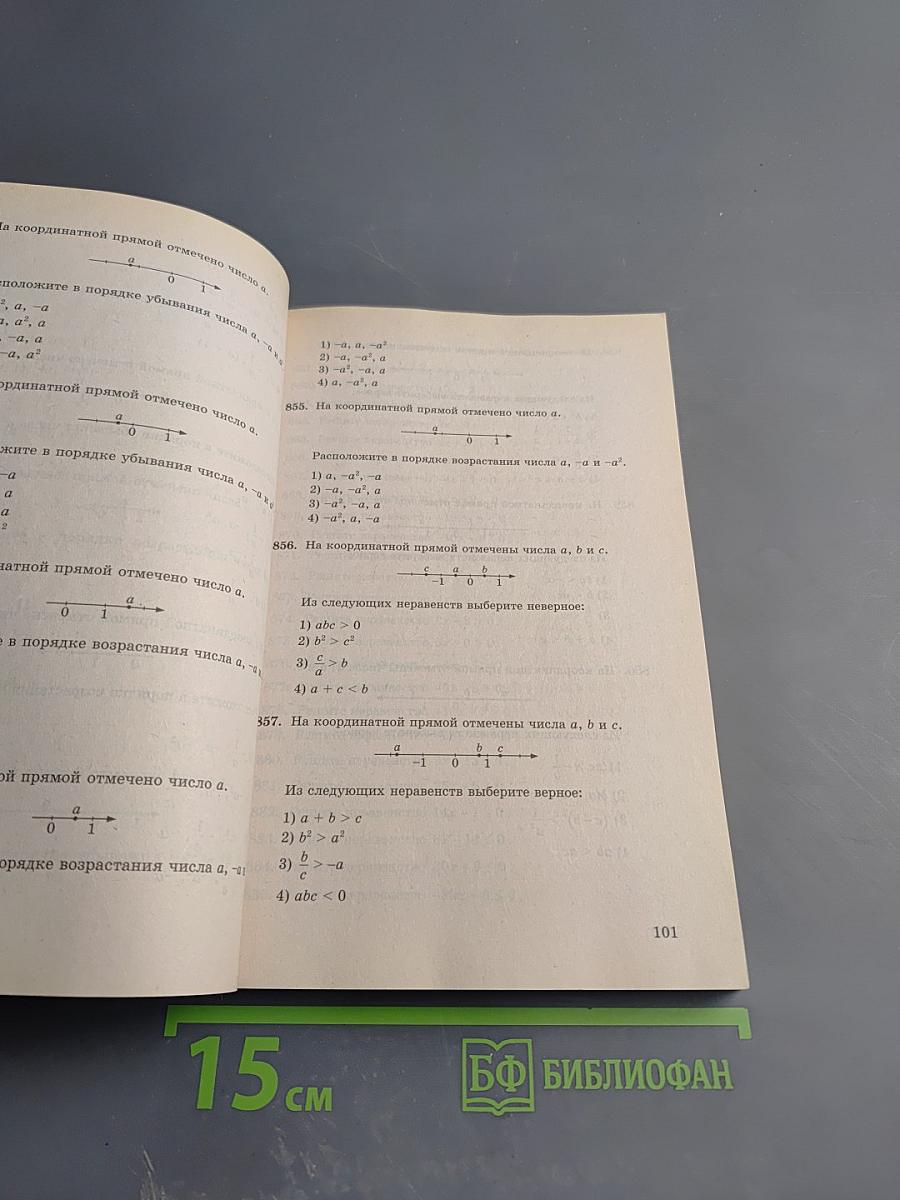 На координатной прямой отмечено число a.
a
0 1
в порядке убывания числа a, -a и
², a, -a
a, a², a
, -a, a
-a, a²
отмечено число a.
a
0 1
в порядке убывания числа a, -a и
-a
a
a
2
прямой отмечено число a.
0 1 a
в порядке возрастания числа a, -a
прямой отмечено число a.
a
0 1
возрастания числа a, -a
1) -a, a, -a²
2) -a, -a², a
3) -a², -a, a
4) a, -a², a
855. На координатной прямой отмечено число a.
a
0 1
Расположите в порядке возрастания числа a, -a и -a².
1) a, -a², -a
2) -a, -a², a
3) -a², -a, a
4) -a², a, -a
856. На координатной прямой отмечены числа a, b и c.
c a b
-1 0 1
Из следующих неравенств выберите неверное:
1) abc > 0
2) b² > c²
3) c/a > b
4) a + c < b
857. На координатной прямой отмечены числа a, b и c.
a b c
-1 0 1
Из следующих неравенств выберите верное:
1) a + b > c
2) b² > a²
3) b/c > -a
4) abc < 0
101
15 см
БФ БИБЛИОФАН